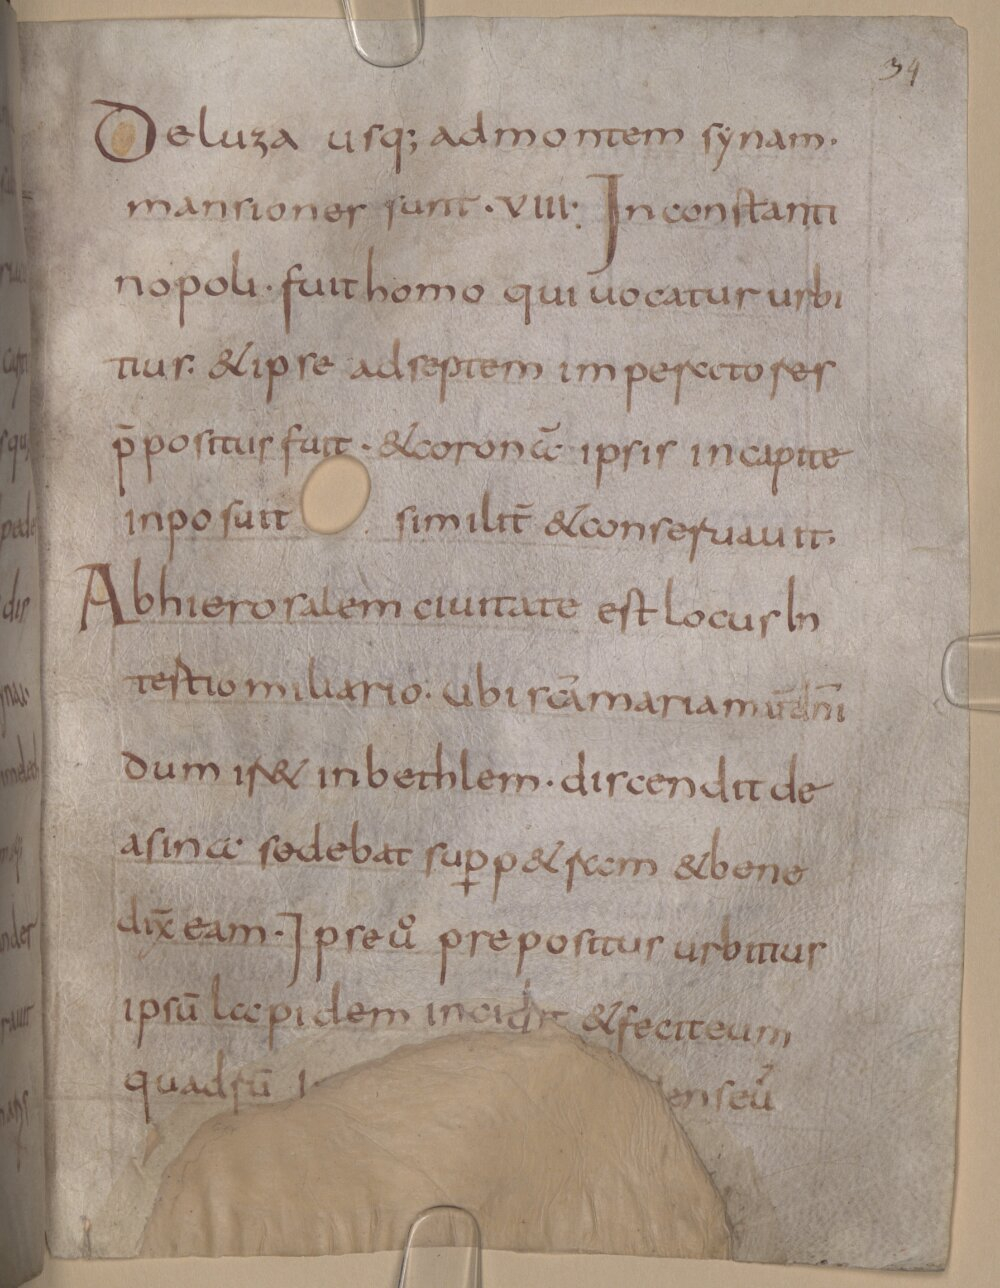 34
Deluza usq; ad montem synam·
mansiones sunt ·VIII· In constanti
nopoli· fuit homo qui uocatur urbi
tius· & ipse ad septem imperatores
p̄positus fuit · & corona ipsis in capite
inposuit similit̄ & conseruauit·
Ab hierosalem ciuitate est locus In
tertio miliario· ubi sc̄a maria mat̄ dn̄i
dum iret in bethlem· discendit de
asina sedebat sup p&ram & bene
dix̄ eam· Ipse uº prepositus urbitius
ipsū lapidem incidit & fecit eum
quadrū enseū